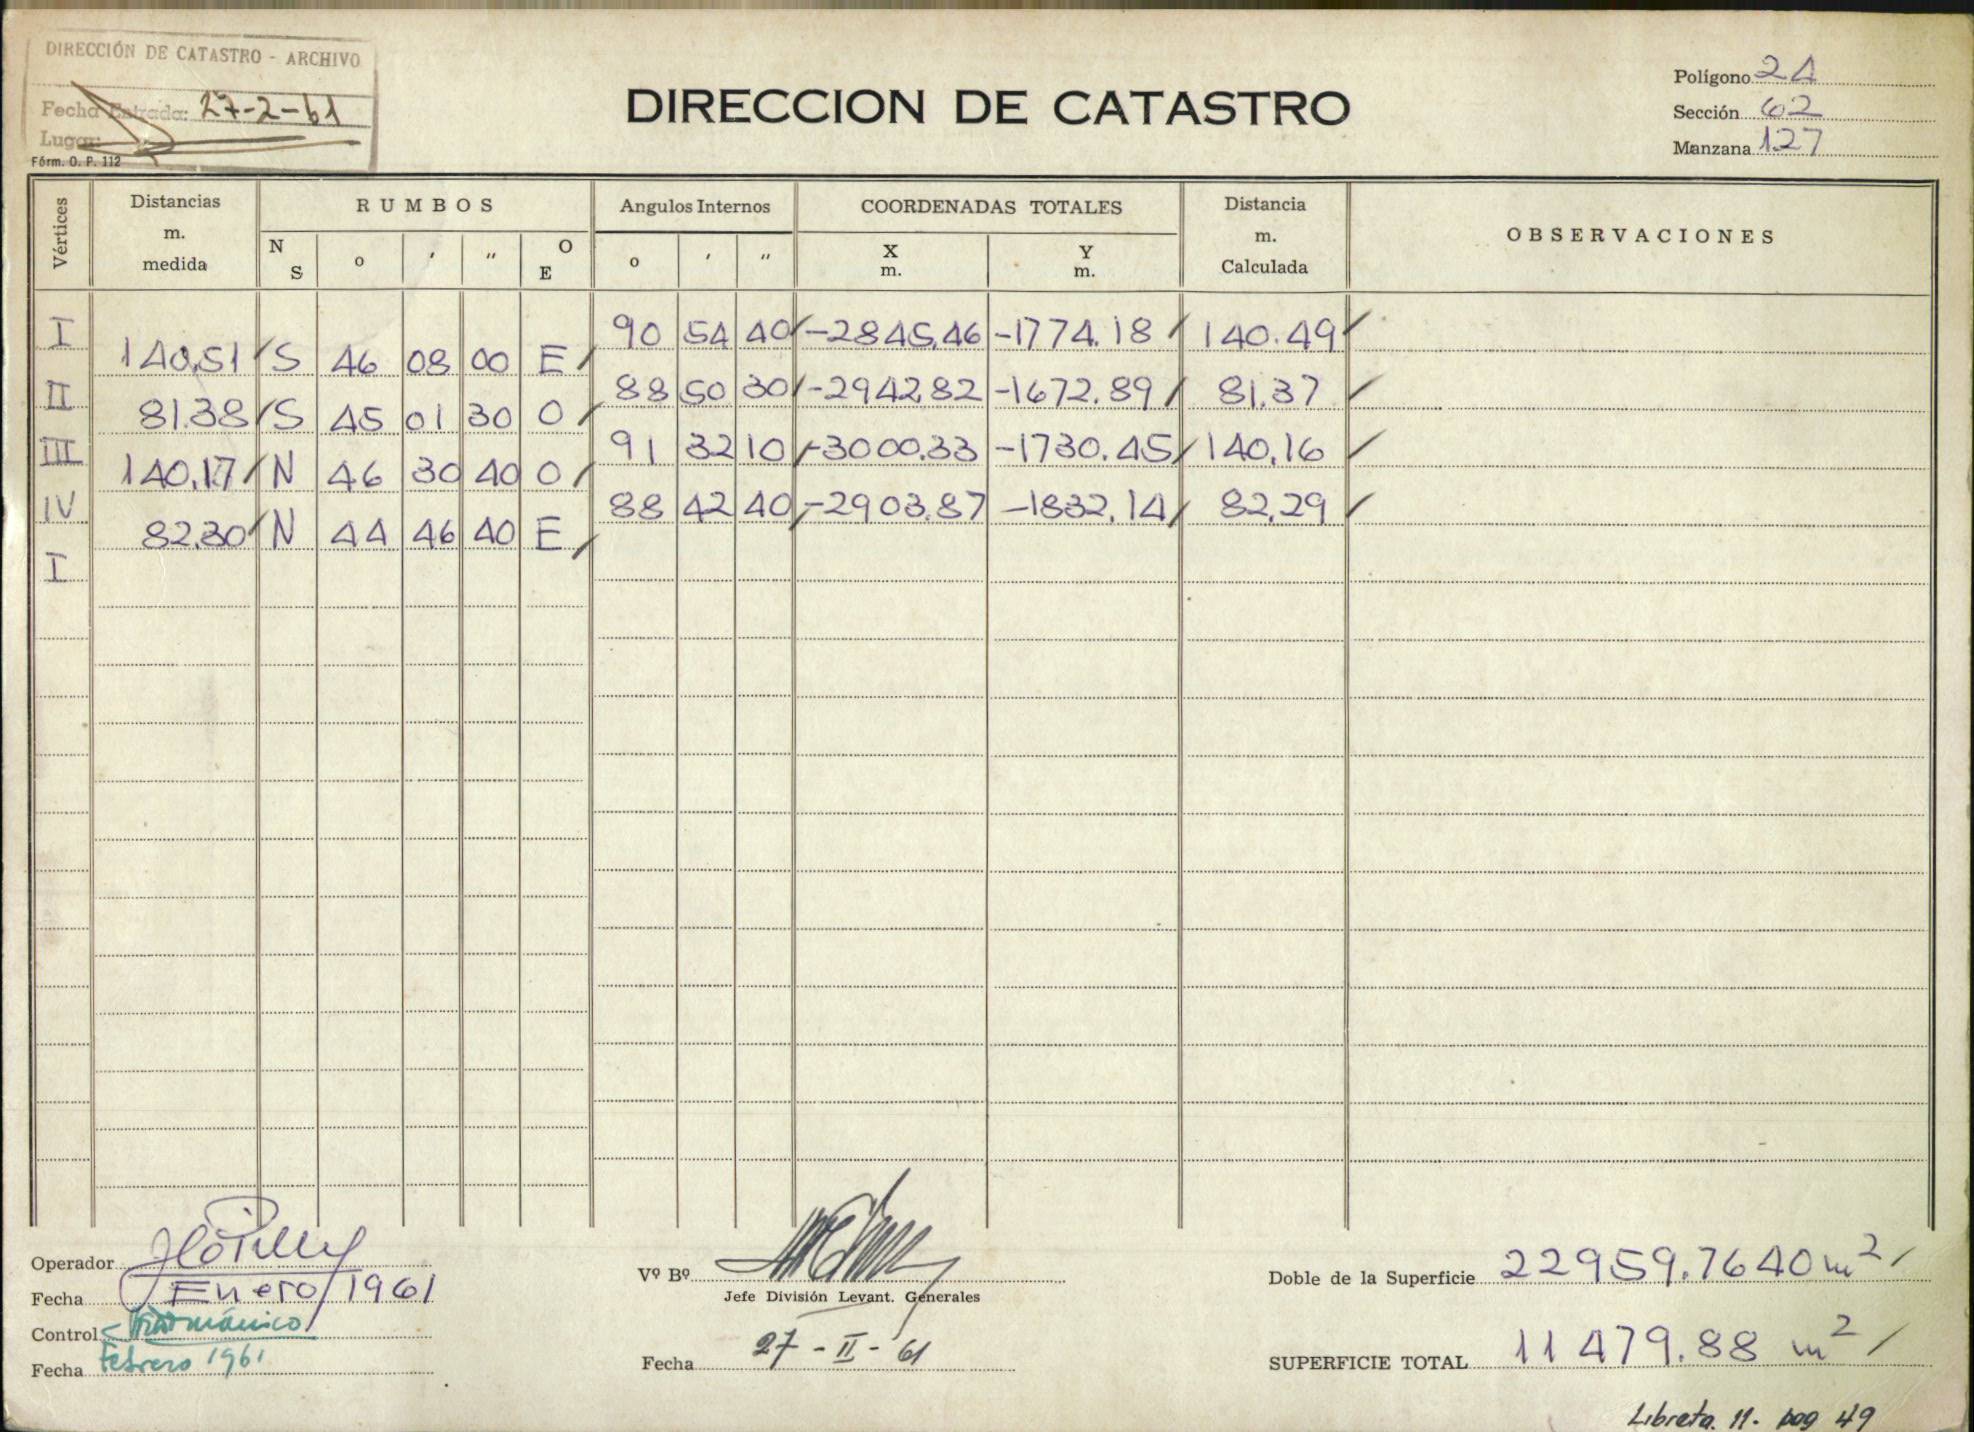 DIRECCIÓN DE CATASTRO - ARCHIVO
Fecha Entrada: 27-2-61
Lugar:
Fórm. O. P. 112
DIRECCION DE CATASTRO
Polígono 24
Sección 62
Manzana 127
Vértices Distancias m. medida RUMBOS Angulos Internos COORDENADAS TOTALES Distancia m. Calculada OBSERVACIONES
N S o ′ ″ O E o ′ ″ X m. Y m.
I 90 54 40 -2845,46 -1774.18 140.49
140,51 S 46 08 00 E
II 88 50 30 -2942,82 -1672.89 81.37
81.38 S 45 01 30 O
III 91 32 10 -3000,33 -1730.45 140,16
140,17 N 46 30 40 O
IV 88 42 40 -2903,87 -1832,14 82,29
82,30 N 44 46 40 E
I
Operador
Fecha Enero/1961
Control
Fecha Febrero 1961
Vº Bº
Jefe División Levant. Generales
Fecha 27 - II - 61
Doble de la Superficie 22959.7640 m²
SUPERFICIE TOTAL 11479.88 m²
Libreta. 11. pag 49